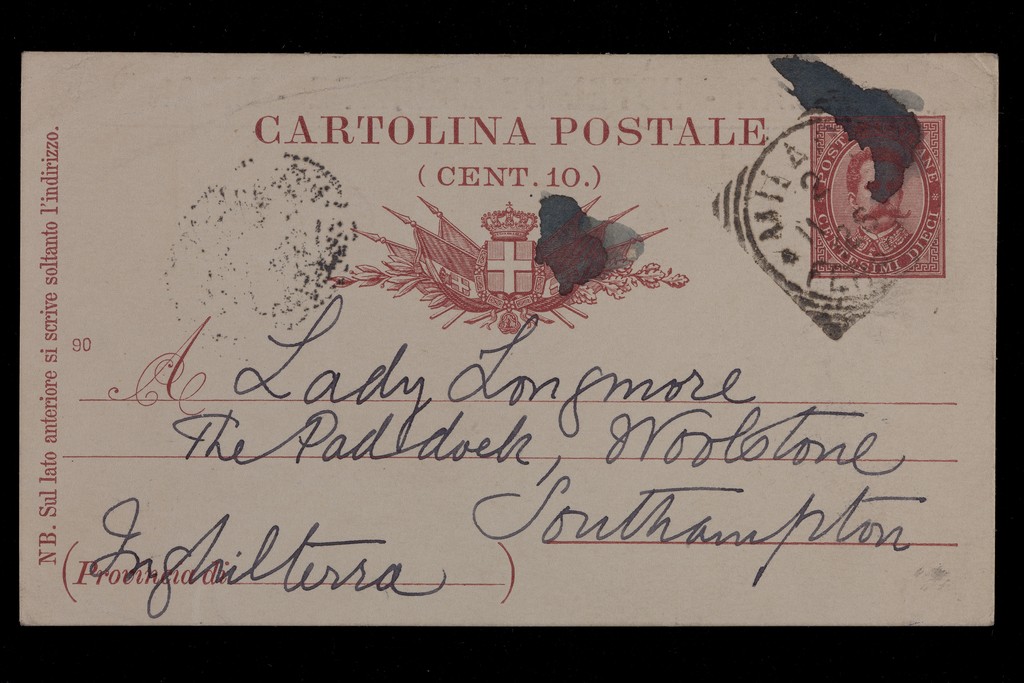 CARTOLINA POSTALE
(CENT. 10.)
CENTESIMI DIECI
MILA
NB. Sul lato anteriore si scrive soltanto l'indirizzo.
90
A Lady Longmore
The Paddock, Woolstone
Southampton
Inghilterra
(Provincia di )